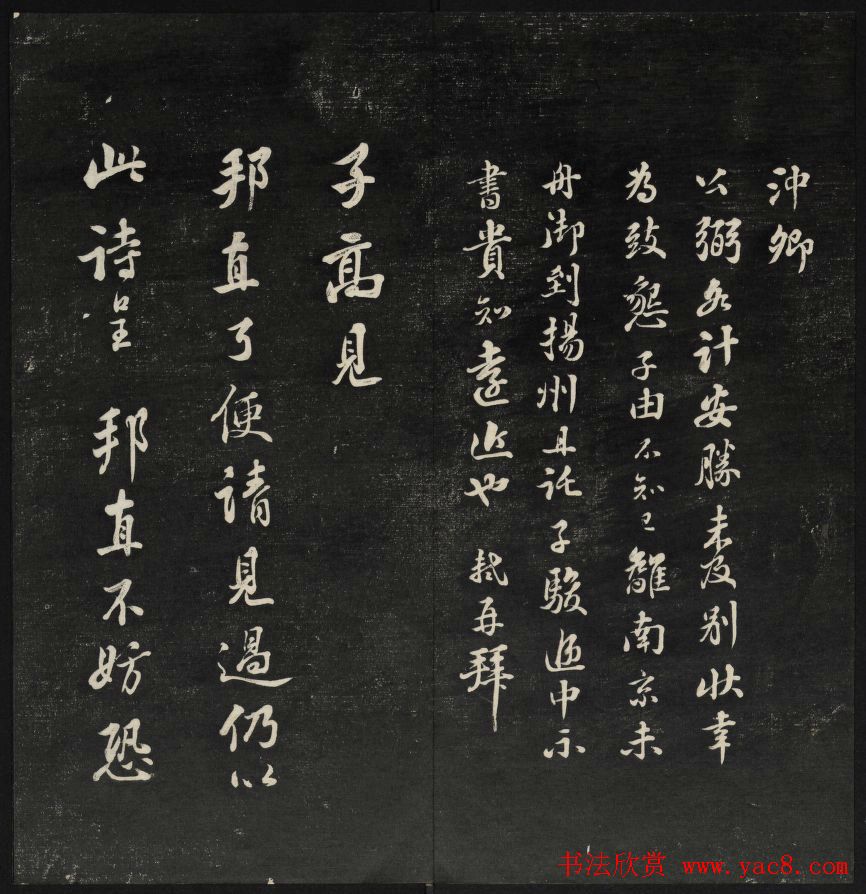 沖卿
公弼各計安勝未及别狀幸
為致懇子由不知已離南京未
舟御到揚州且託子駿遞中示
書貴知遠近也 軾再拜
子高見
邦直了便請見過仍以
此詩呈 邦直不妨恐
书法欣赏 www.yac8.com